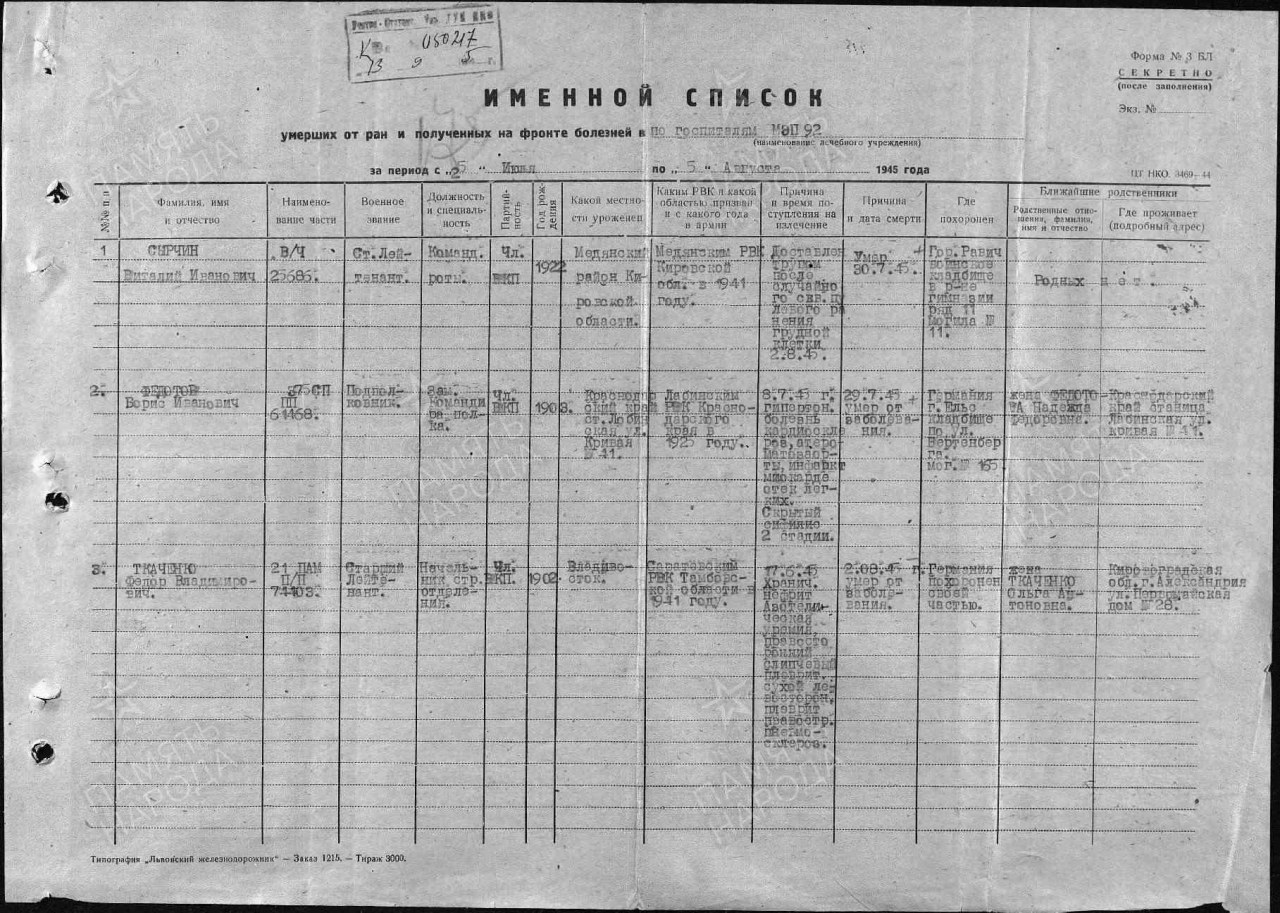 К 050217
13 9 5 г.
Форма № 3 БЛ
СЕКРЕТНО
(после заполнения)
Экз. №
ИМЕННОЙ СПИСОК
умерших от ран и полученных на фронте болезней в по госпиталям МЭП 92
(наименование лечебного учреждения)
за период с „25 " Июля по „ 5 " Августа 1945 года
ЦТ НКО. 3469—44
№№ п.п
Фамилия, имя
и отчество
Наимено-
вание части
Военное
звание
Должность
и специаль-
ность
Партий-
ность
Год рож-
дения
Какой местно-
сти уроженец
Каким РВК и какой
областью призван
и с какого года
в армии
Причина
и время по-
ступления на
излечение
Причина
и дата смерти
Где
похоронен
Ближайшие родственники
Родственные отно-
шения, фамилия,
имя и отчество
Где проживает
(подробный адрес)
1
СЫРЧИН
Виталий Иванович
В/Ч
25685.
Ст.Лей-
тенант.
Команд.
роты.
Чл.
ВКП
1922
Медянский
район Ки-
ровской
области.
Медянским РВК
Кировской
обл. в 1941
году.
Доставлен
трупом
после
случайно
го скв.пу
левого ра
нения
грудной
клетки
2.8.45.
Умер
30.7.45.
Гор.Равич
воинское
кладбище
в р-не
гимназии
ряд 11
могила №
11.
Родных нет.
2.
ФЕДОТОВ
Борис Иванович
375 СП
ПП
61468.
Подпол-
ковник.
Зам.
Команди
ра пол-
ка.
Чл.
ВКП
1903.
Краснодар
ский край
ст.Лабин
ская ул.
Кривая
№ 41.
Лабинским
РВК Красно-
дарского
края в
1925 году.
8.7.45 г.
гипертон.
болезнь
кардиоскле
роз,атеро-
матозаор-
ты,инфаркт
миокарде
отек лег-
ких.
Скрытый
сифилис
2 стадии.
29.7.45 г
умер от
заболева-
ния.
Германия
г.Ельс
кладбище
по ул.
Вертенбер
га.
мог.№ 165
жена ФЕДОТО-
ВА Надежда
Федоровна.
Краснодарский
край станица
Лабинская ул.
кривая № 41.
3.
ТКАЧЕНКО
Федор Владимиро-
вич.
21 ПАМ
П/П
74403.
Старший
Лейте-
нант.
Началь-
ник стр.
отделе-
ния.
Чл.
ВКП.
1902.
Владиво-
сток.
Саратовский
РВК Тамбовс-
кой области в
1941 году.
17.6.45
Хранич.
нефрит
Азотеми-
ческая
уремия,
правосто
ронний
слипчевый
плеврит.
сухой ле-
восторон,
плеврит
двавостр.
пневмо-
склероз.
2.08.45 г.
умер от
заболе-
вания.
Германия
похоронен
своей
частью.
жена
ТКАЧЕНКО
Ольга Ан-
тоновна.
Кировоградская
обл.г.Александрия
ул.Первомайская
дом № 28.
Типография „Львовский железнодорожник" — Заказ 1215. — Тираж 3000.
ПАМЯТЬ
НАРОДА